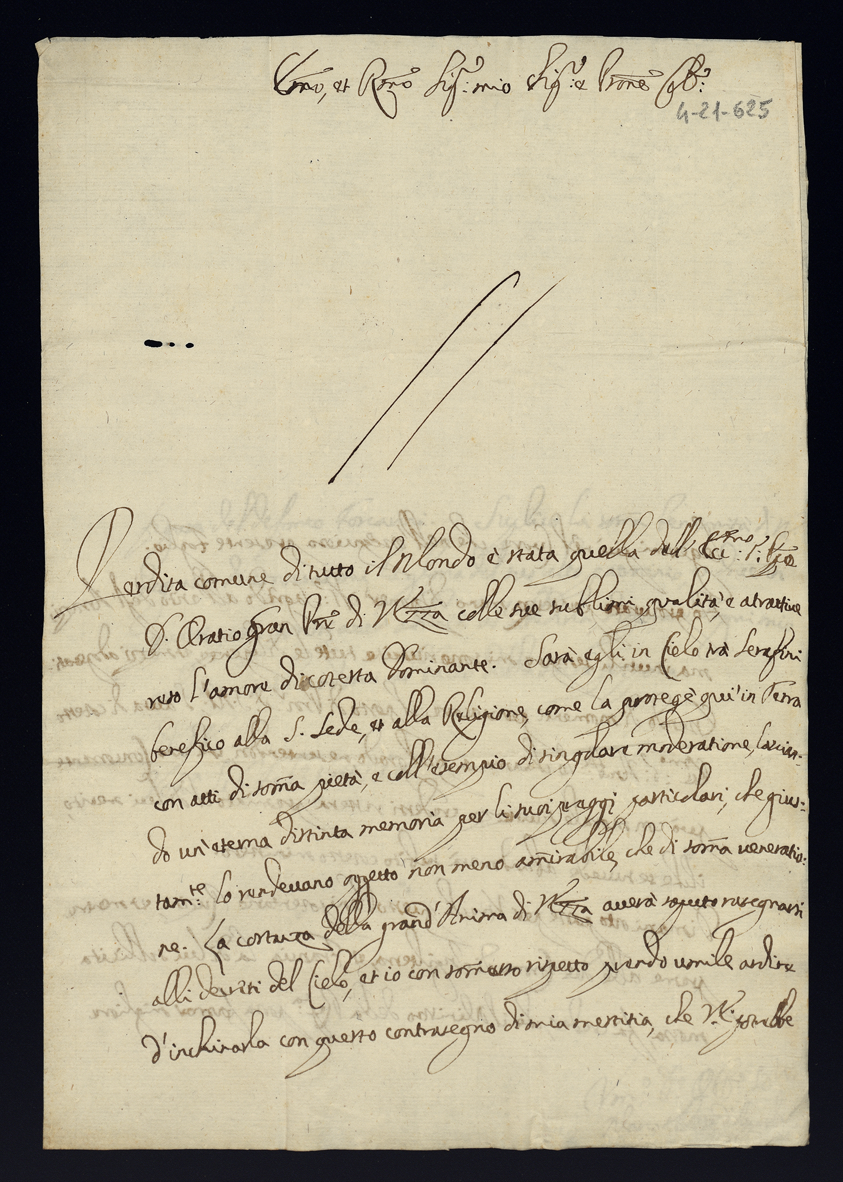 Emo, et Rmo Sig.r mio Sig.r e Prone Col.mo
4-21-625
Perdita comune di tutto il Mondo è stata quella dell' Ecc.mo S.r Pñpe
D. Oratio Gran Pre di V. Ezza colle sue sublimi qualità, e atrattive
reso l'amore di cotesta Dominante. Sarà egli in Cielo trà Serafini
benefico alla S. Sede, et alla Religione, come la protegè qui in Terra
con atti di soma pietà, e coll'esempio di singolare moderatione, lascian-
do un'eterna distinta memoria per li suoi preggi particolari, che gius-
tam.te lo rendevano oggetto non meno amirabile, che di soma veneratio:
ne. La costanza della grand'Anima di V. Ezza averà saputo rasegnarsi
alli decreti del Cielo, et io con somesso rispetto prendo umile ardire
d'inchinarla con questo contrasegno di mia mestitia, che